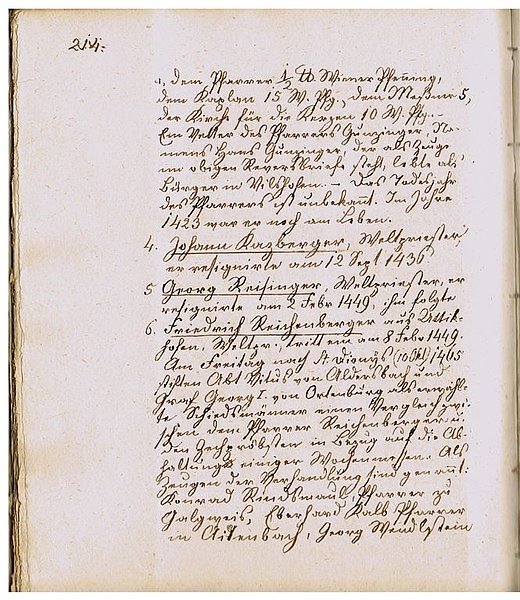 214.
, dem Pfarrer ½ ℔. Wiener Pfennig,
dem Kaplan 15 W. Pfg., dem Meßner 5,
der Kirche für die Kerzen 10 W. Pfg. –
Ein Vetter des Pfarrers Gunzinger, Na-
mens Hans Gunzinger, der als Zeuge
im obigen Reversbriefe steht, lebte als
Bürger in Vilshofen. – Das Todesjahr
des Pfarrers ist unbekant. Im Jahre
1423 war er noch am Leben.
4. Johann Kazberger, Weltpriester,
er resignirte am 12 Sept 1436
5 Georg Reisinger, Weltpriester, er
resignirte am 2 Febr 1449, ihm folgte
6. Friedrich Reichenberger aus Uttik-
hofen, Weltpr., tritt ein am 8 Febr 1449.
Am Freitag nach St. Dionys (10 Okt) 1465
stiften Abt Vitus von Aldersbach und
Graf Georg I. von Ortenburg als erwähl-
te Schiedsmänner einen Vergleich zwi-
schen dem Pfarrer Reichenberger u.
den Zechpröbsten in Bezug auf die Ab-
haltung einiger Wochenmessen. Als
Zeugen der Verhandlung sind genannt:
Konrad Rindsmaul, Pfarrer zu
Galgweis, Eberhard Kalb Pfarrer
in Aitenbach, Georg Wendlstein